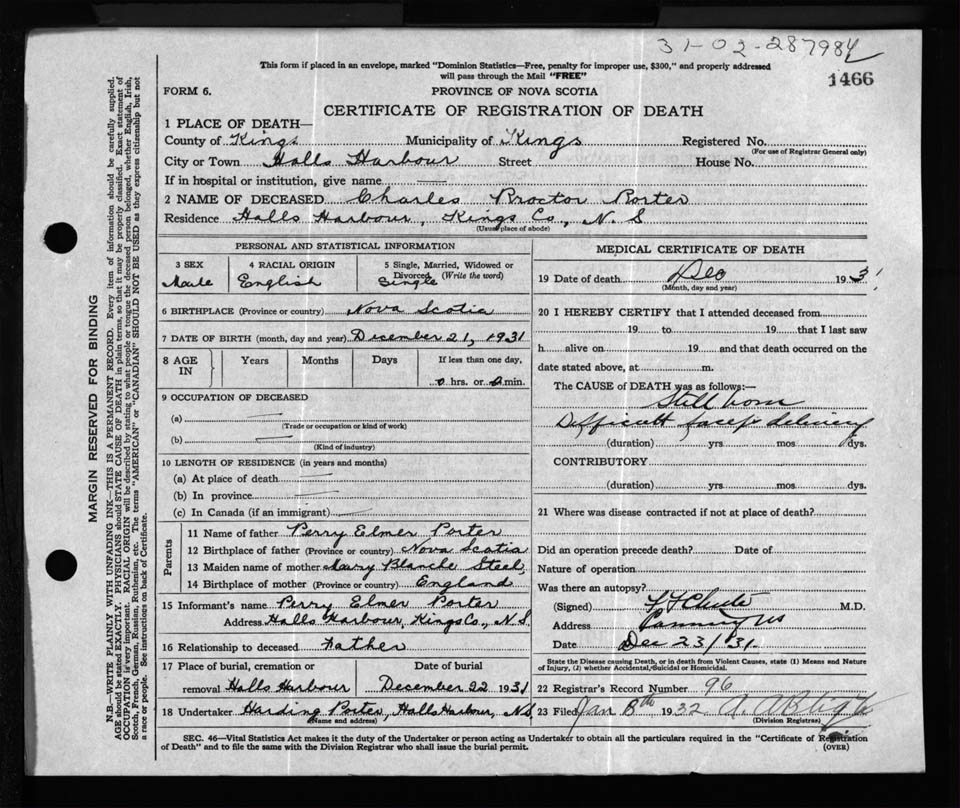 31-02-287984
This form if placed in an envelope, marked "Dominion Statistics—Free, penalty for improper use, $300," and properly addressed
will pass through the Mail "FREE"
1466
FORM 6.
PROVINCE OF NOVA SCOTIA
CERTIFICATE OF REGISTRATION OF DEATH
1 PLACE OF DEATH—
County of Kings Municipality of Kings Registered No.
(For use of Registrar General only)
City or Town Halls Harbour Street House No.
If in hospital or institution, give name
2 NAME OF DECEASED Charles Proctor Porter
Residence Halls Harbour, Kings Co., N. S
(Usual place of abode)
PERSONAL AND STATISTICAL INFORMATION
3 SEX 4 RACIAL ORIGIN 5 Single, Married, Widowed or
Divorced (Write the word)
Male English Single
6 BIRTHPLACE (Province or country) Nova Scotia
7 DATE OF BIRTH (month, day and year) December 21, 1931
8 AGE IN Years Months Days If less than one day,
0 hrs. or 0 min.
9 OCCUPATION OF DECEASED
(a)
(Trade or occupation or kind of work)
(b)
(Kind of industry)
10 LENGTH OF RESIDENCE (in years and months)
(a) At place of death
(b) In province
(c) In Canada (if an immigrant)
Parents
11 Name of father Perry Elmer Porter
12 Birthplace of father (Province or country) Nova Scotia
13 Maiden name of mother Mary Blanche Steel,
14 Birthplace of mother (Province or country) England
15 Informant's name Perry Elmer Porter
Address Halls Harbour, Kings Co., N. S.
16 Relationship to deceased Father
17 Place of burial, cremation or Date of burial
removal Halls Harbour December 22 1931
18 Undertaker Harding Porter, Halls Harbour, N.S
(Name and address)
MEDICAL CERTIFICATE OF DEATH
19 Date of death Dec 1931
(Month, day and year)
20 I HEREBY CERTIFY that I attended deceased from
19 to 19 that I last saw
h alive on 19 and that death occurred on the
date stated above, at m.
The CAUSE OF DEATH was as follows:—
Still born
Difficult delivery
(duration) yrs mos dys.
CONTRIBUTORY
(duration) yrs. mos. dys.
21 Where was disease contracted if not at place of death?
Did an operation precede death? Date of
Nature of operation
Was there an autopsy?
(Signed) M.D.
Address Canning NS
Date Dec 23/31.
State the Disease causing Death, or in death from Violent Causes, state (1) Means and Nature
of Injury, (2) whether Accidental, Suicidal or Homicidal.
22 Registrar's Record Number 96
23 Filed Jan 8th 1932
(Division Registrar)
SEC. 46—Vital Statistics Act makes it the duty of the Undertaker or person acting as Undertaker to obtain all the particulars required in the "Certificate of Registration
of Death" and to file the same with the Division Registrar who shall issue the burial permit.
(OVER)
MARGIN RESERVED FOR BINDING
N.B.—WRITE PLAINLY WITH UNFADING INK—THIS IS A PERMANENT RECORD. Every item of information should be carefully supplied.
AGE should be stated EXACTLY. PHYSICIANS should STATE CAUSE OF DEATH in plain terms, so that it may be properly classified. Exact statement of
OCCUPATION is very important. RACIAL ORIGIN will be described by stating to what people or tongue the deceased person belonged, whether English, Irish,
Scotch, French, German, Russian, Ruthenian, etc. The terms "AMERICAN" or "CANADIAN" SHOULD NOT BE USED as they express citizenship but not
a race or people. See instructions on back of Certificate.